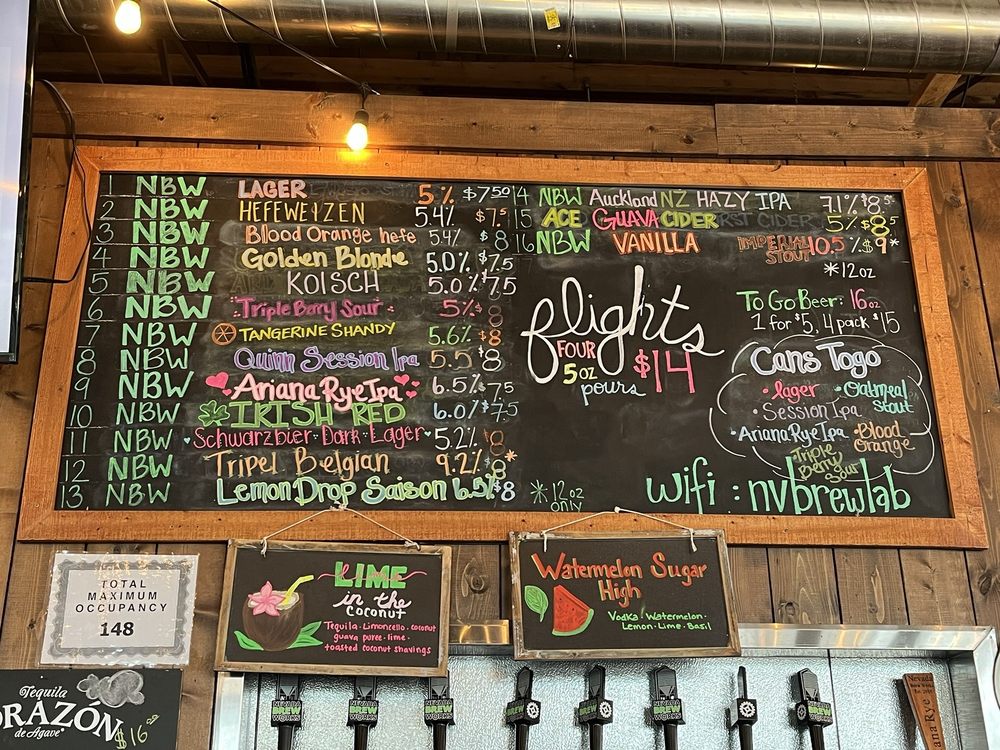 1 NBW LAGER 5% $7.50
2 NBW HEFEWEIZEN 5.4% $7.5
3 NBW Blood Orange hefe 5.4% $8
4 NBW Golden Blonde 5.0% $7.5
5 NBW KOLSCH 5.0% $7.5
6 NBW Triple Berry Sour 5% $8
7 NBW TANGERINE SHANDY 5.6% $8
8 NBW Quinn Session Ipa 5.5 $8
9 NBW Ariana Rye Ipa 6.5% $7.5
10 NBW IRISH RED 6.0% $7.5
11 NBW Schwarzbier Dark Lager 5.2% $8
12 NBW Tripel Belgian 9.2% $8*
13 NBW Lemon Drop Saison 6.5% $8
*12oz
only
14 NBW Auckland NZ HAZY IPA 7.1% $8.5
15 ACE GUAVA CIDER 5% $8.5
16 NBW VANILLA IMPERIAL STOUT 10.5% $9*
*12oz
flights
FOUR
5oz
pours
$14
To Go Beer: 16oz
1 for $5, 4 pack $15
Cans Togo
• lager
• Oatmeal
stout
• Session Ipa
• Ariana Rye Ipa
• Blood
Orange
Triple
Berry
Sour
wifi : nvbrewlab
TOTAL
MAXIMUM
OCCUPANCY
148
LIME
in the
coconut
Tequila · Limoncello · coconut
guava puree · lime ·
toasted coconut shavings
Watermelon Sugar
High
Vodka · Watermelon ·
Lemon · Lime · Basil
Tequila
ORAZÓN
de Agave
$16
NEVADA
BREW
WORKS
NEVADA
BREW
WORKS
NEVADA
BREW
WORKS
NEVADA
BREW
WORKS
NEVADA
BREW
WORKS
NEVADA
BREW
WORKS
NEVADA
BREW
WORKS
Nevada
ana Rye